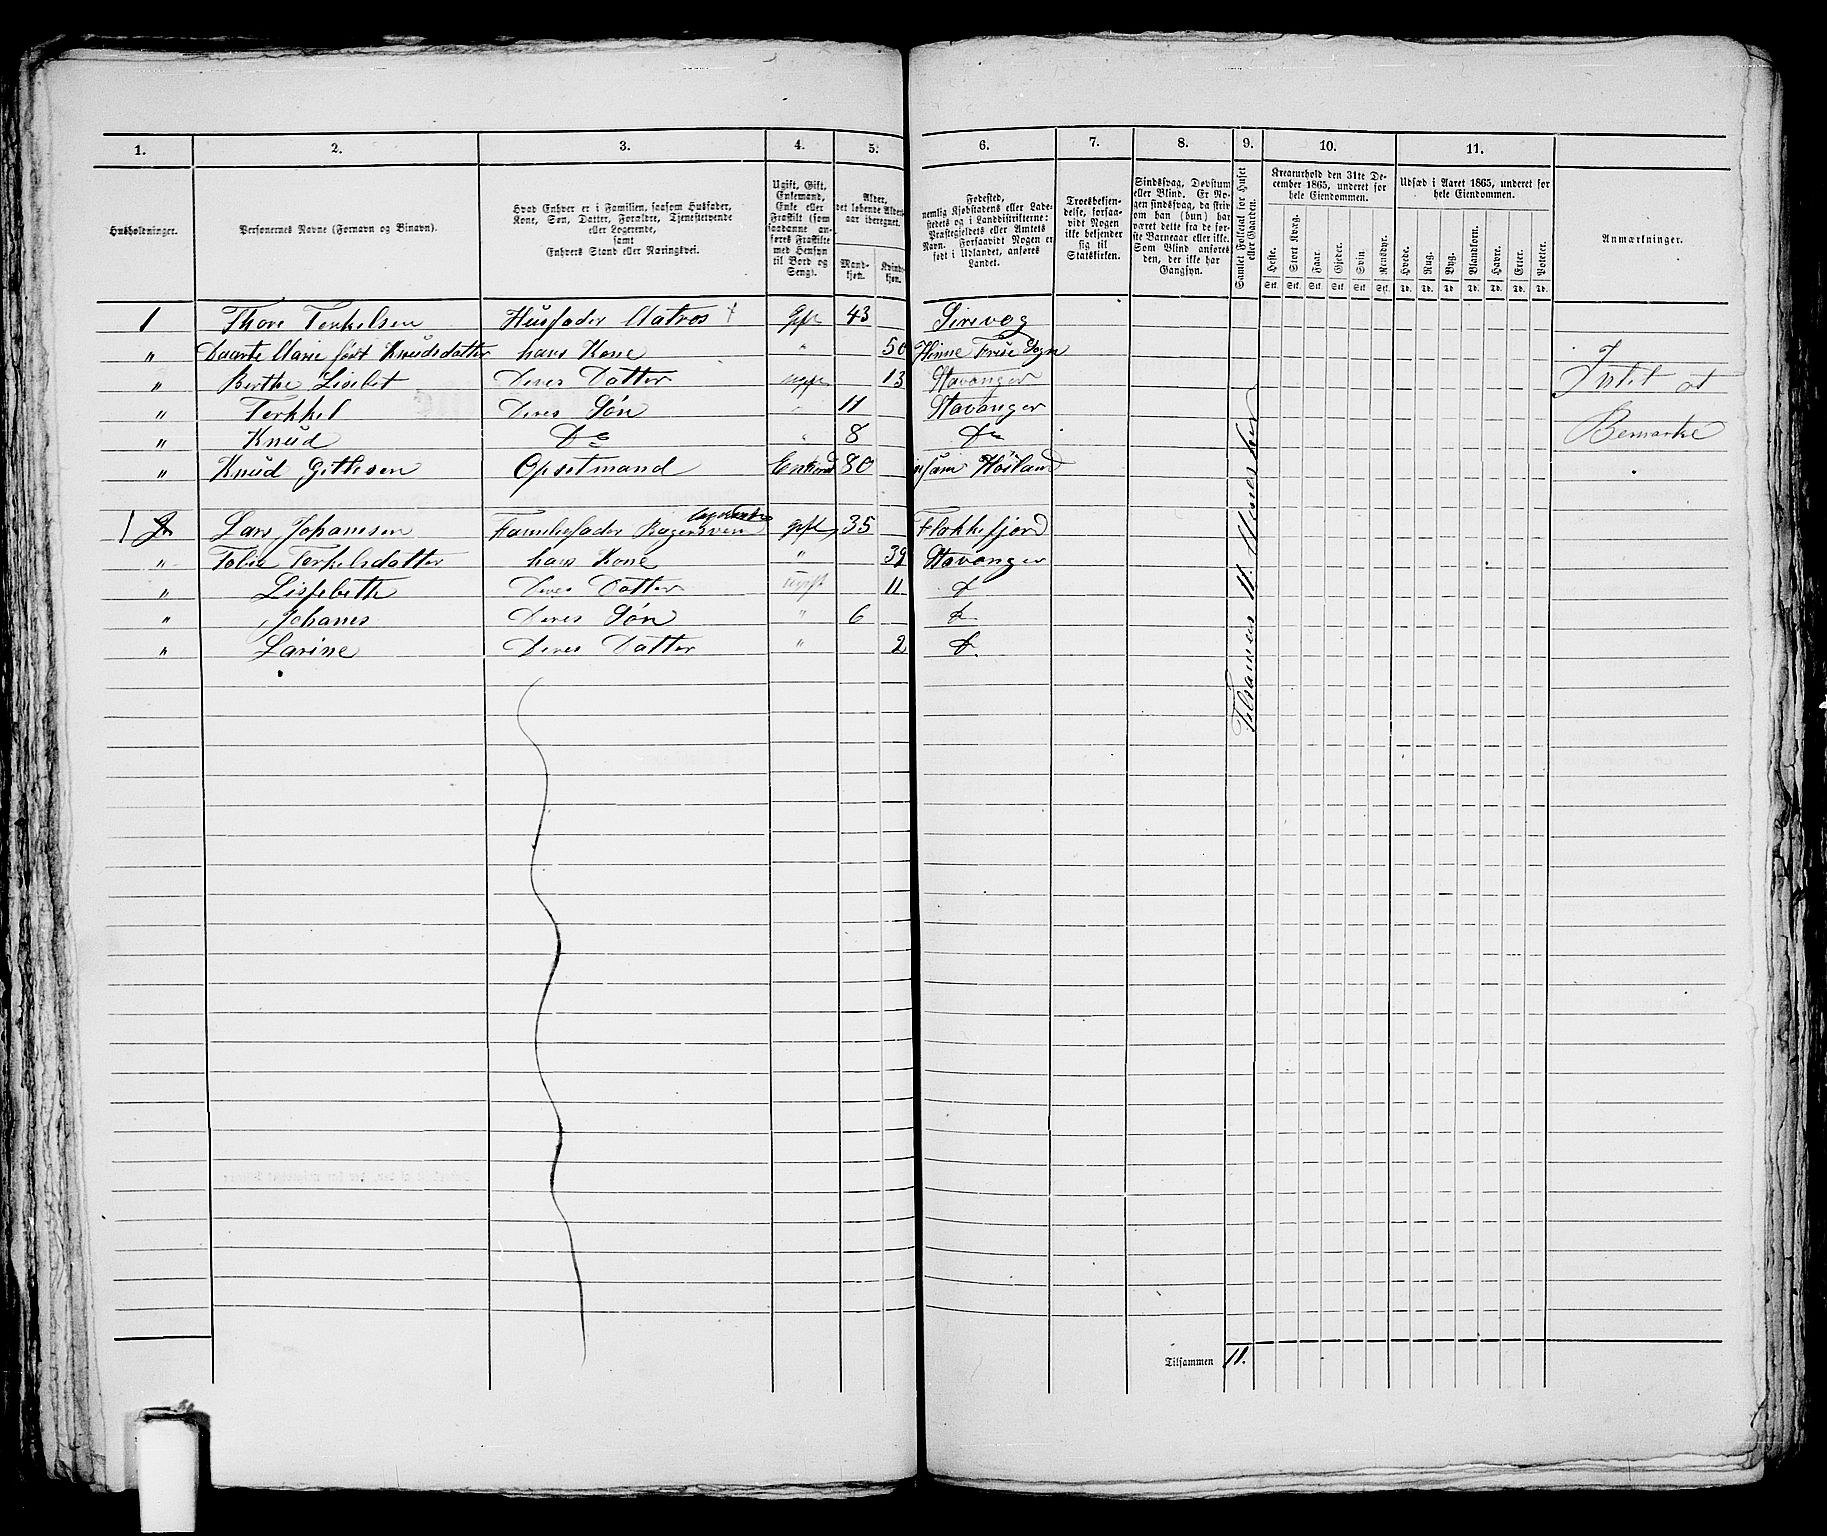 1. 2. 3. 4. 5. 6. 7. 8. 9. 10. 11.
Husholdninger.
Personernes Navne (Fornavn og Binavn).
Hvad Enhver er i Familien, saasom Husfader,
Kone, Søn, Datter, Forældre, Tjenestetyende
eller Logerende,
samt
Enhvers Stand eller Næringsvei.
Ugift, Gift,
Enkemand,
Enke eller
Fraskilt (som
saadanne an-
føres Fraskilte
med Hensyn
til Bord og
Seng).
Alder,
det løbende Alders-
aar iberegnet.
Mand-
kjøn.
Kvind-
kjøn.
Fødested,
nemlig Kjøbstadens eller Lade-
stedets og i Landdistrikterne:
Præstegjeldets eller Amtets
Navn. Forsaavidt Nogen er
født i Udlandet, anføres
Landet.
Troesbekjen-
delse, forsaa-
vidt Nogen
ikke bekjender
sig til
Statskirken.
Sindssvag, Døvstum
eller Blind. Er No-
gen sindssvag, da skriv
om han (hun) har
været dette fra de før-
ste Barneaar eller ikke.
Som Blind anføres
den, der ikke har
Gangsyn.
Samlet Folketal for Huset
eller Gaarden.
Kreaturhold den 31te De-
cember 1865, underet for
hele Eiendommen.
Heste. Stort Kvæg. Faar. Gjeder. Svin Rensdyr.
Stk. Stk. Stk. Stk. Stk. Stk.
Udsæd i Aaret 1865, underet for
hele Eiendommen.
Hvede. Rug. Byg. Blandkorn. Havre. Erter. Poteter.
Td. Td. Td. Td. Td. Td. Td.
Anmærkninger.
1 Thore Terkelsen Husfader Matros + Gift 43 Sirevog
" Daarte Marie født Knudsdatter hans Kone " 50 Sogn
" Berthe Lisebet Deres Datter ugift 13 Stavanger
" Terkkel Deres Søn " 11 Stavanger
" Knud Do " 8 Do
" Knud Gittlesen Opsetmand Enkem 80 Høiland
Intet at
Bemærke
logerende
1 2 Lars Johannsen Familiefader Bagersven gift 35 Flekkefjord
" Tobie Terkelsdatter hans Kone " 39 Stavanger
" Lissebeth Deres Datter ugift 11 do
" Johanes Deres Søn " 6 do
" Larine Deres Datter " 2 do
Tilsamens 11. Mennesker
Tilsammen 11.